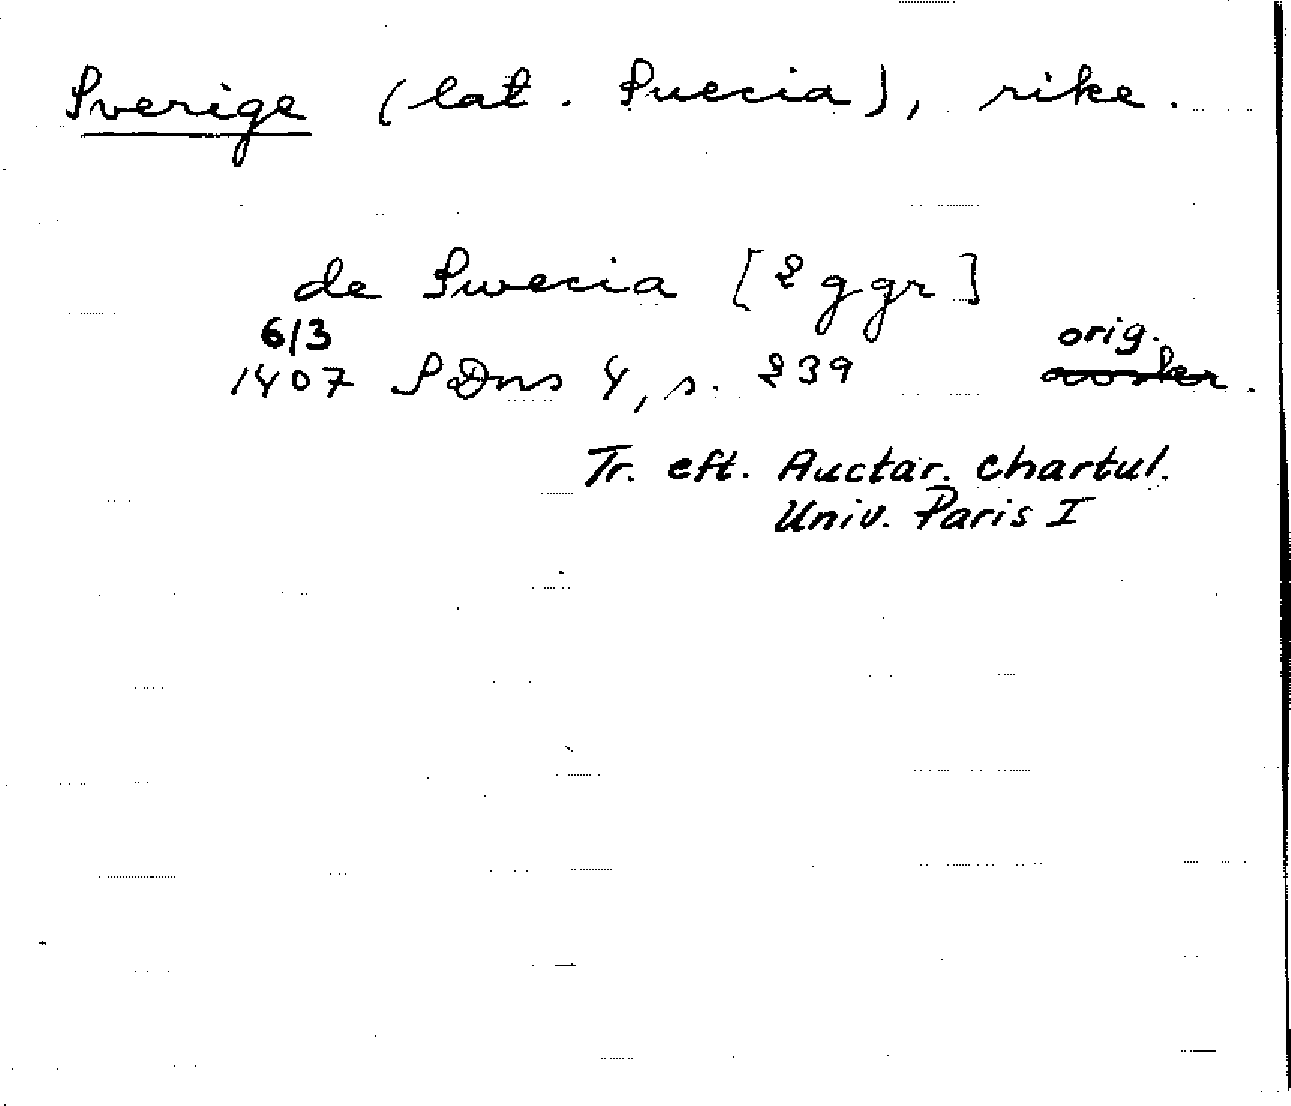 Sverige (lat. Suecia), rike.
de Swecia [2 ggr]
6/3 orig.
1407 SDns 4, s. 239
Tr. eft. Auctar. chartul.
Univ. Paris I